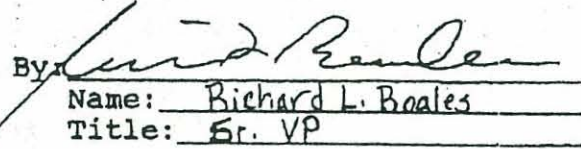 By:
Name: Richard L. Boales
Title: Sr. VP